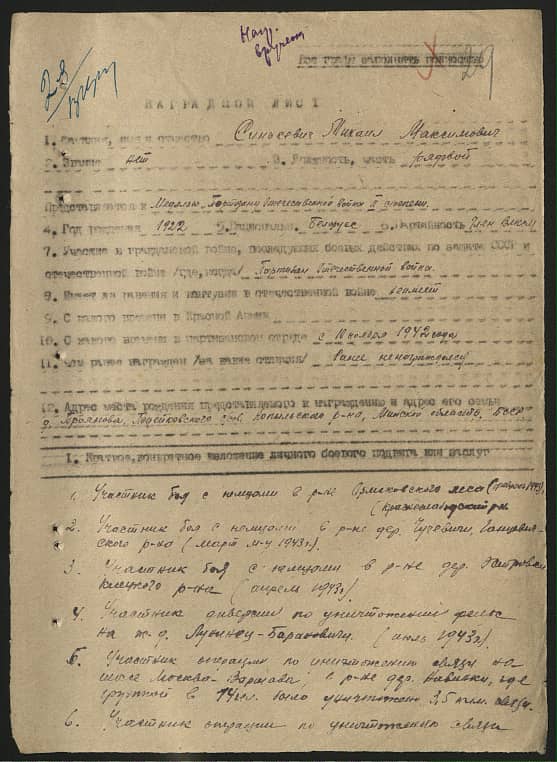 Нац.
28
29
Все графы заполнять полностью
НАГРАДНОЙ ЛИСТ
1. Фамилия, имя и отчество Синьсевич Михаил Максимович
2. Звание нет 3. Должность, часть рядовой
Представляется к Медалью "Партизану Отечественной войны II степени.
4. Год рождения 1922 5. Национальн. Белорус 6. Партийность Член ВЛКСМ
7. Участие в гражданской войне, последующих боевых действиях по защите СССР и
отечественной войне /где, когда/ Партизан Отечественной войны.
8. Имеет ли ранения и контузии в отечественной войне не имеет
9. С какого времени в Красной Армии
10. С какого времени в партизанском отряде с 10 ноября 1942 года
11. Чем ранее награжден /за какие отличия/ ранее не награждался
12. Адрес места рождения представляемого к награждению и адрес его семьи
д. Копыльского р-на, Минской области, БССР
I. Краткое, конкретное изложение личного боевого подвига или заслуг
1. Участник боя с немцами в р-не леса (февраль 1943г.)
2. Участник боя с немцами в р-не дер. Чучевичи,
ского р-на (март м-ц 1943г.).
3. Участник боя с немцами в р-не дер.
Клецкого р-на (апрель 1943г.)
4. Участник диверсии по уничтожению рельс
на ж.д. Лунинец-Барановичи. (июль 1943г.).
5. Участник операции по уничтожению связи на
шоссе Москва-Варшава, в р-не дер. где
группой в 14 чел. было уничтожено 3,5 клм. связи.
6. Участник операции по уничтожению связи